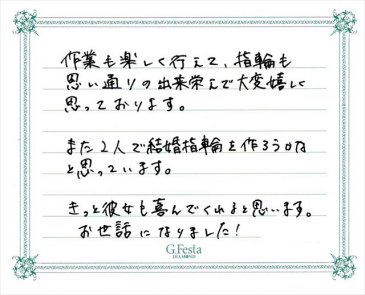 作業も楽しく行えて、指輪も
思い通りの出来栄えで大変嬉しく
思っております。
また2人で結婚指輪を作ろうかな
と思っています。
きっと彼女も喜んでくれると思います。
お世話になりました!
G.Festa
DIAMOND